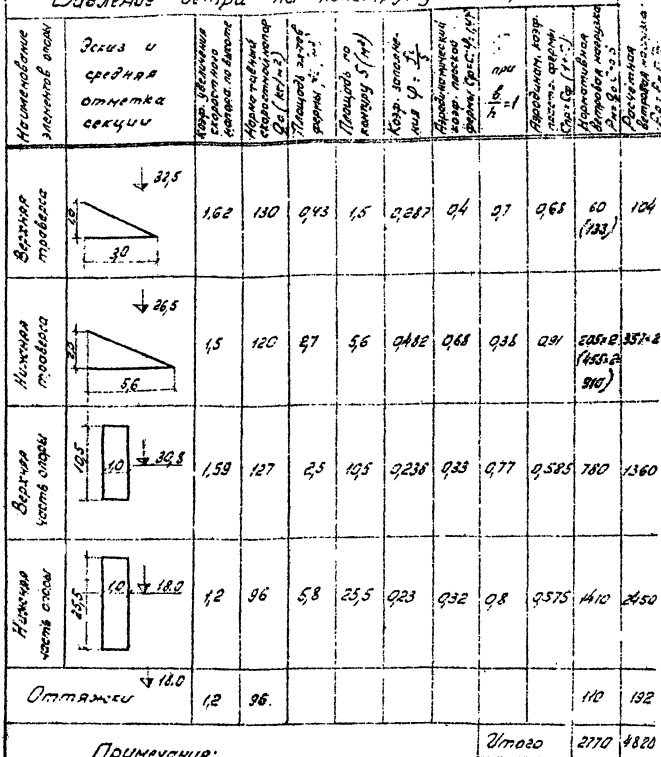 Давление ветра на конструкцию
Наименование элементов опоры
Эскиз и средняя отметка секции
Коэф. увеличения скоростного напора по высоте
Нормативный скоростной напор Q₀ (кг/м²)
Площадь эл-тов фермы,
Площадь по контуру S (м²)
Коэф. заполнения φ =
Аэродинамический коэф. плоской фермы
при b/h = 1
Аэродинам. коэф.
Нормативная ветровая нагрузка
Расчетная ветровая нагрузка
Верхняя траверса 32,5 3,0 1,62 130 0,43 1,5 0,287 0,4 0,7 0,68 60 (133) 104
Нижняя траверса 26,5 5,6 1,5 120 2,7 5,6 0,482 0,68 0,38 0,91 205×2 (455×2 910) 357×2
Верхняя часть опоры 10,5 1,0 30,8 1,59 127 2,5 10,5 0,238 0,33 0,77 0,585 780 1360
Нижняя часть опоры 25,5 1,0 18.0 1,2 96 5,8 25,5 0,23 0,32 0,8 0,575 1410 2450
Оттяжки 18.0 1,2 96. 110 192
Примечания: Итого 2770 4820